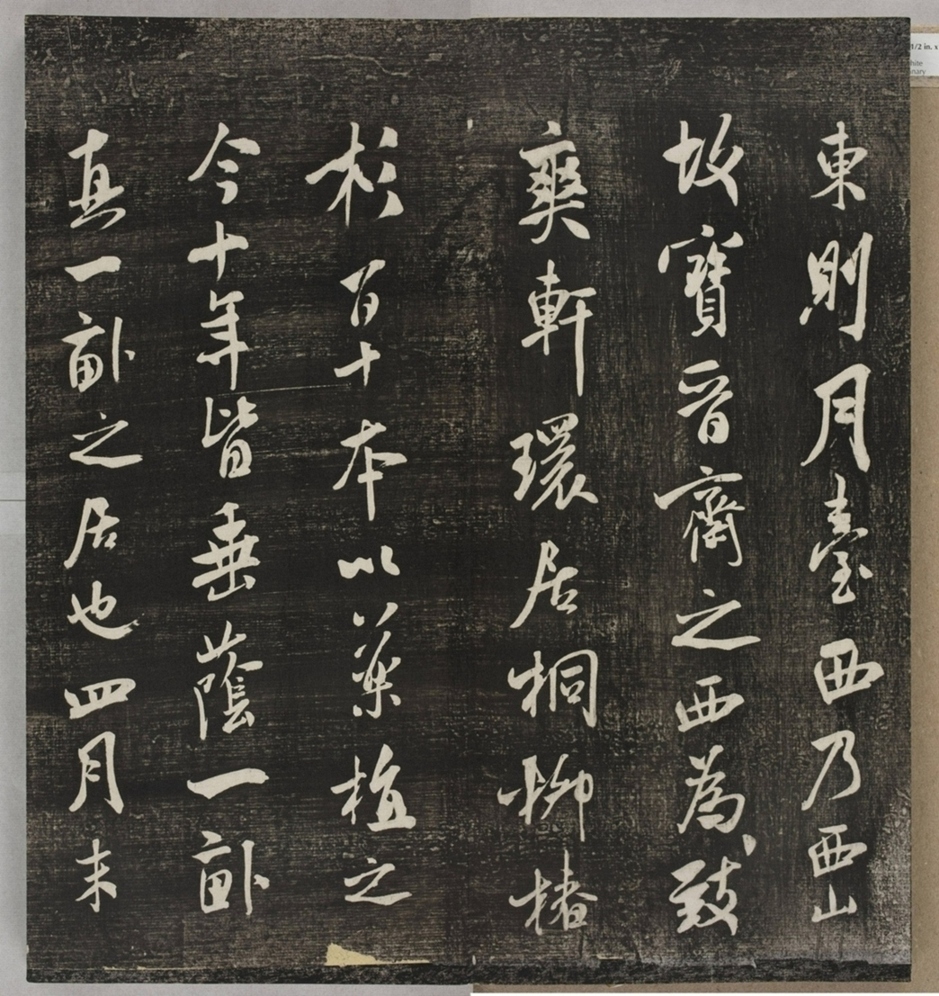 東則月臺西乃西山
故寶晉齋之西為致
爽軒環居桐柳椿
杉百十本以藥植之
今十年皆垂蔭一畝
真一畝之居也四月末
1/2 in. x